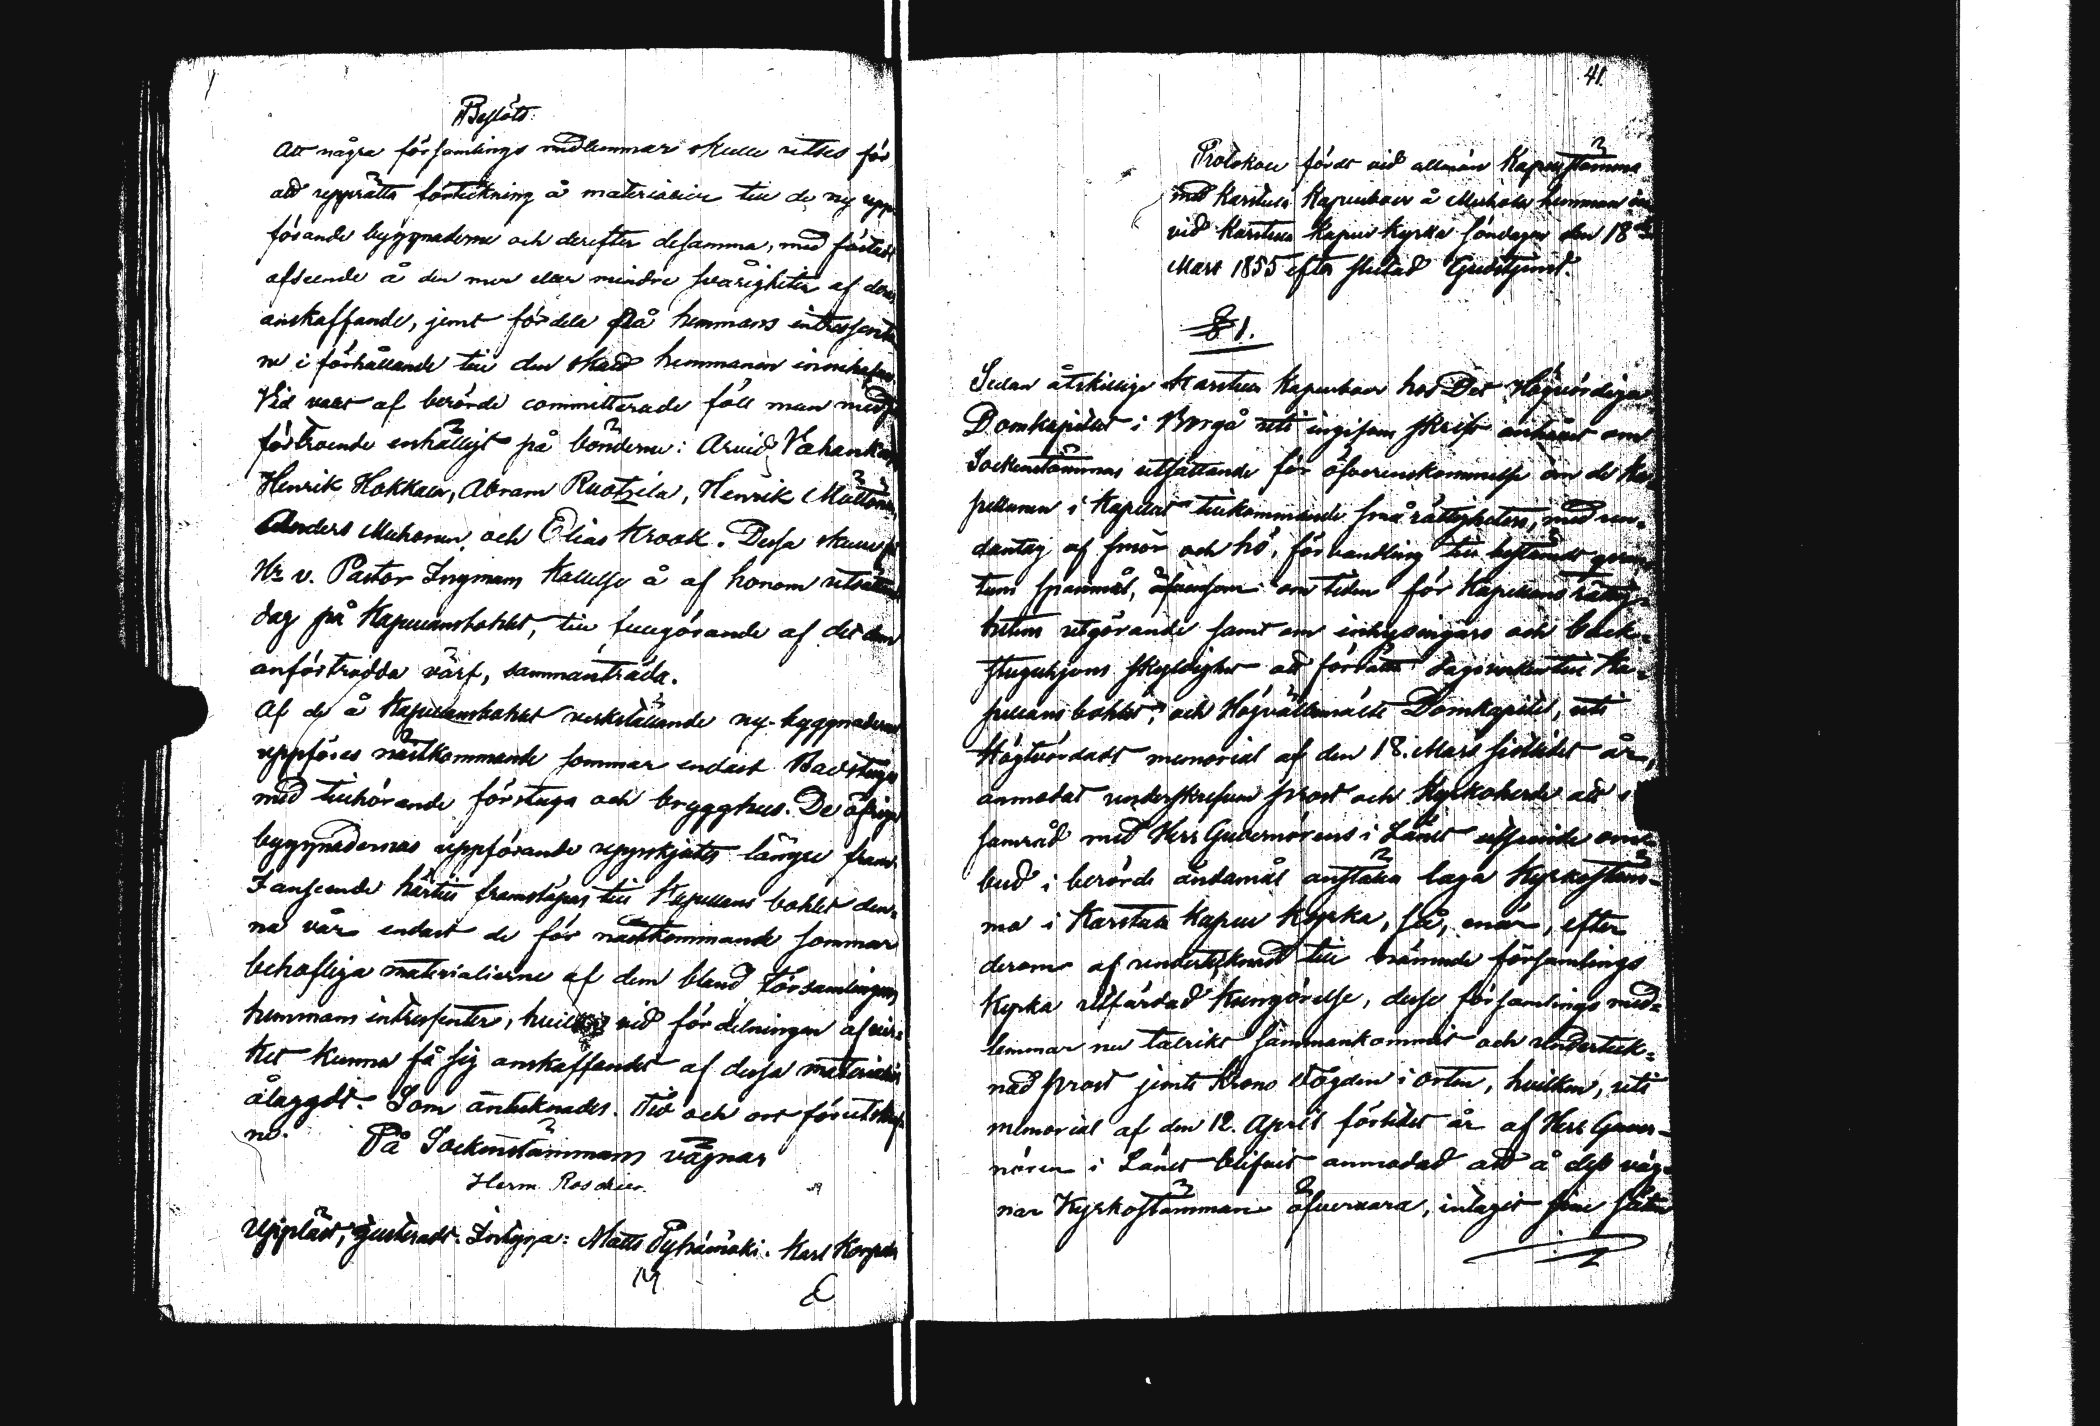 Beslöts:
Att några församlings medlemmar skulle utses för
att upprätta förteckning å materialier till de ny upp-
förande byggnaderne och derefter desamma, med fästadt
afseende å den mer eller mindre svårigheten af deras
anskaffande, jemt fördela på hemmans intressenter-
ne i förhållande till den skatt hemmanen innehafva.
Vid valet af berörde committerade föll man med
förtroende enhälligt på bönderne: Arvid Vahanka
Henrik Hokkala, Abram Ruotzila, Henrik Mattona
Anders Muhonen och Elias Krook. Dessa skulle på
Hr v. Pastor Ingmans kallelse å af honom utsatt
dag på Kapellansbohlet, till fullgörande af det dem
anförtrodda värf, sammanträda.
Af de å Kapellansbohlet verkställande ny-byggnaderne
uppföres nästkommande sommar endast Badstuga
med tillhörande förstuga och brygghus. De öfriga
byggnadernas uppförande uppskjutes längre fram.
I anseende härtill framskapas till Kapellans bohlet den-
na vår endast de för nästkommande sommar
behöfliga materialierne af dem bland Församlingens
hemmans intressenter, hvilka vid fördelningen af vir-
ket kunna få sig anskaffandet af dessa materialier
ålaggdt. Som antecknades. Tid och ort förutskrif-
ne.
På Sockenstämmans vägnar
Herm. Roschier.
Uppläst, justeradt. Intyga: Matts Pyhämäki. Karl Korpela
41.
Protokoll fördt vid allmän Kapellstämma
med Karstula Kapellboer å Muhola hemman in
vid Karstula Kapell kyrka söndagen den 18de
Mars 1855 efter slutad Gudstjenst.
§ 1.
Sedan åtskillige Karstula Kapellboer hos Det Högvördiga
Domkapitlet i Borgå uti ingifven skrift anhållit om
Sockenstämmas utsättande för öfverenskommelse om de Ka-
pellanen i Kapellet tillkommande små rättigheters, med un-
dantag af smör och hö, förvandling till bestämdt qvan-
tum spannmål, äfvensom om tiden för Kapellans rättig-
hetens utgörande samt om inhysingars och back-
stuguhjons skyldighet att förrätta dagsverken till Ka-
pellans bohlet; och Högvälbemälte Domkapitel, uti
Högtvördadt memorial af den 18. Mars sistlidet år,
anmodat underskrifven prost och Kyrkoherde att i
samråd med Herr Guvernörens i Länet utseende om-
bud i berörde ändamål anställa laga Kyrkostäm-
ma i Karstula Kapell kyrka, så, enär, efter
derom af undertecknad till nämnde församlings
kyrka utfärdad kungörelse, desse församlings med-
lemmar nu talrikt sammankommit och underteck-
nad prost jemte Krono Fogden i orten, hvilken, uti
memorial af den 12. April förlidet år af Herr Guver-
nören i Länet blifvit anmodad att å dess väg-
nar Kyrkostämman öfvervara, intagit sine säten